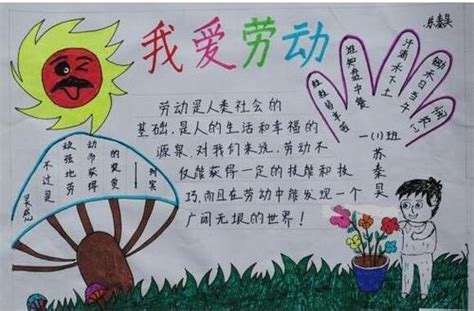 我爱劳动
锄禾日当午
汗滴禾下土
谁知盘中餐
粒粒皆辛苦
一(1)班
劳动是人类社会的
基础,是人的生活和幸福的
源泉,对我们来说,劳动不
仅能获得一定的技能和技
巧,而且在劳动中能发现一个
广阔无垠的世界!
灵感
不过是
顽强地劳
动而获得
的奖赏
——列宾